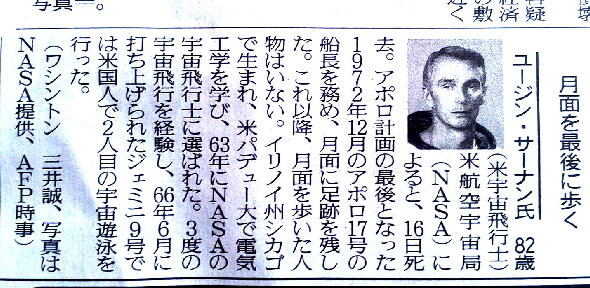 月面を最後に歩く
ユージン・サーナン氏 82歳
(米宇宙飛行士)
米航空宇宙局
(NASA)に
よると、16日死
去。アポロ計画の最後となった
1972年12月のアポロ17号の
船長を務め、月面に足跡を残し
た。これ以降、月面を歩いた人
物はいない。イリノイ州シカゴ
で生まれ、米パデュー大で電気
工学を学び、63年にNASAの
宇宙飛行士に選ばれた。3度の
宇宙飛行を経験し、66年6月に
打ち上げられたジェミニ9号で
は米国人で2人目の宇宙遊泳を
行った。
(ワシントン 三井誠、写真は
NASA提供、AFP時事)
写真一。